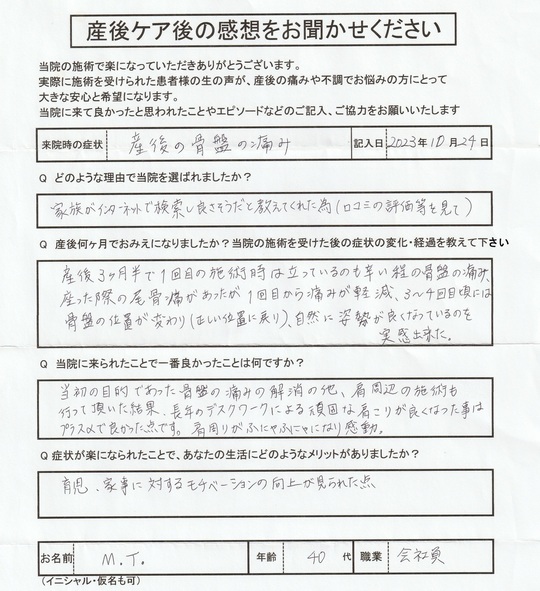 産後ケア後の感想をお聞かせください
当院の施術で楽になっていただきありがとうございます。
実際に施術を受けられた患者様の生の声が、産後の痛みや不調でお悩みの方にとって
大きな安心と希望になります。
当院に来て良かったと思われたことやエピソードなどのご記入、ご協力をお願いいたします
来院時の症状 産後の骨盤の痛み 記入日 2023年10月24日
Q どのような理由で当院を選ばれましたか？
家族がインターネットで検索し良さそうだと教えてくれた為(口コミの評価等を見て)
Q 産後何ヶ月でおみえになりましたか？当院の施術を受けた後の症状の変化・経過を教えて下さい
産後3ヶ月半で1回目の施術時は立っているのも辛い程の骨盤の痛み、
座った際の尾骨痛があったが1回目から痛みが軽減、3〜4回目頃には
骨盤の位置が変わり(正しい位置に戻り)、自然に姿勢が良くなっているのを
実感出来た。
Q 当院に来られたことで一番良かったことは何ですか？
当初の目的であった骨盤の痛みの解消の他、肩周辺の施術も
行って頂いた結果、長年のデスクワークによる頑固な肩こりが良くなった事は
プラスαで良かった点です。肩周りがふにゃふにゃになり感動。
Q 症状が楽になられたことで、あなたの生活にどのようなメリットがありましたか？
育児、家事に対するモチベーションの向上が見られた点
お名前 M.T. 年齢 40 代 職業 会社員
(イニシャル・仮名も可)